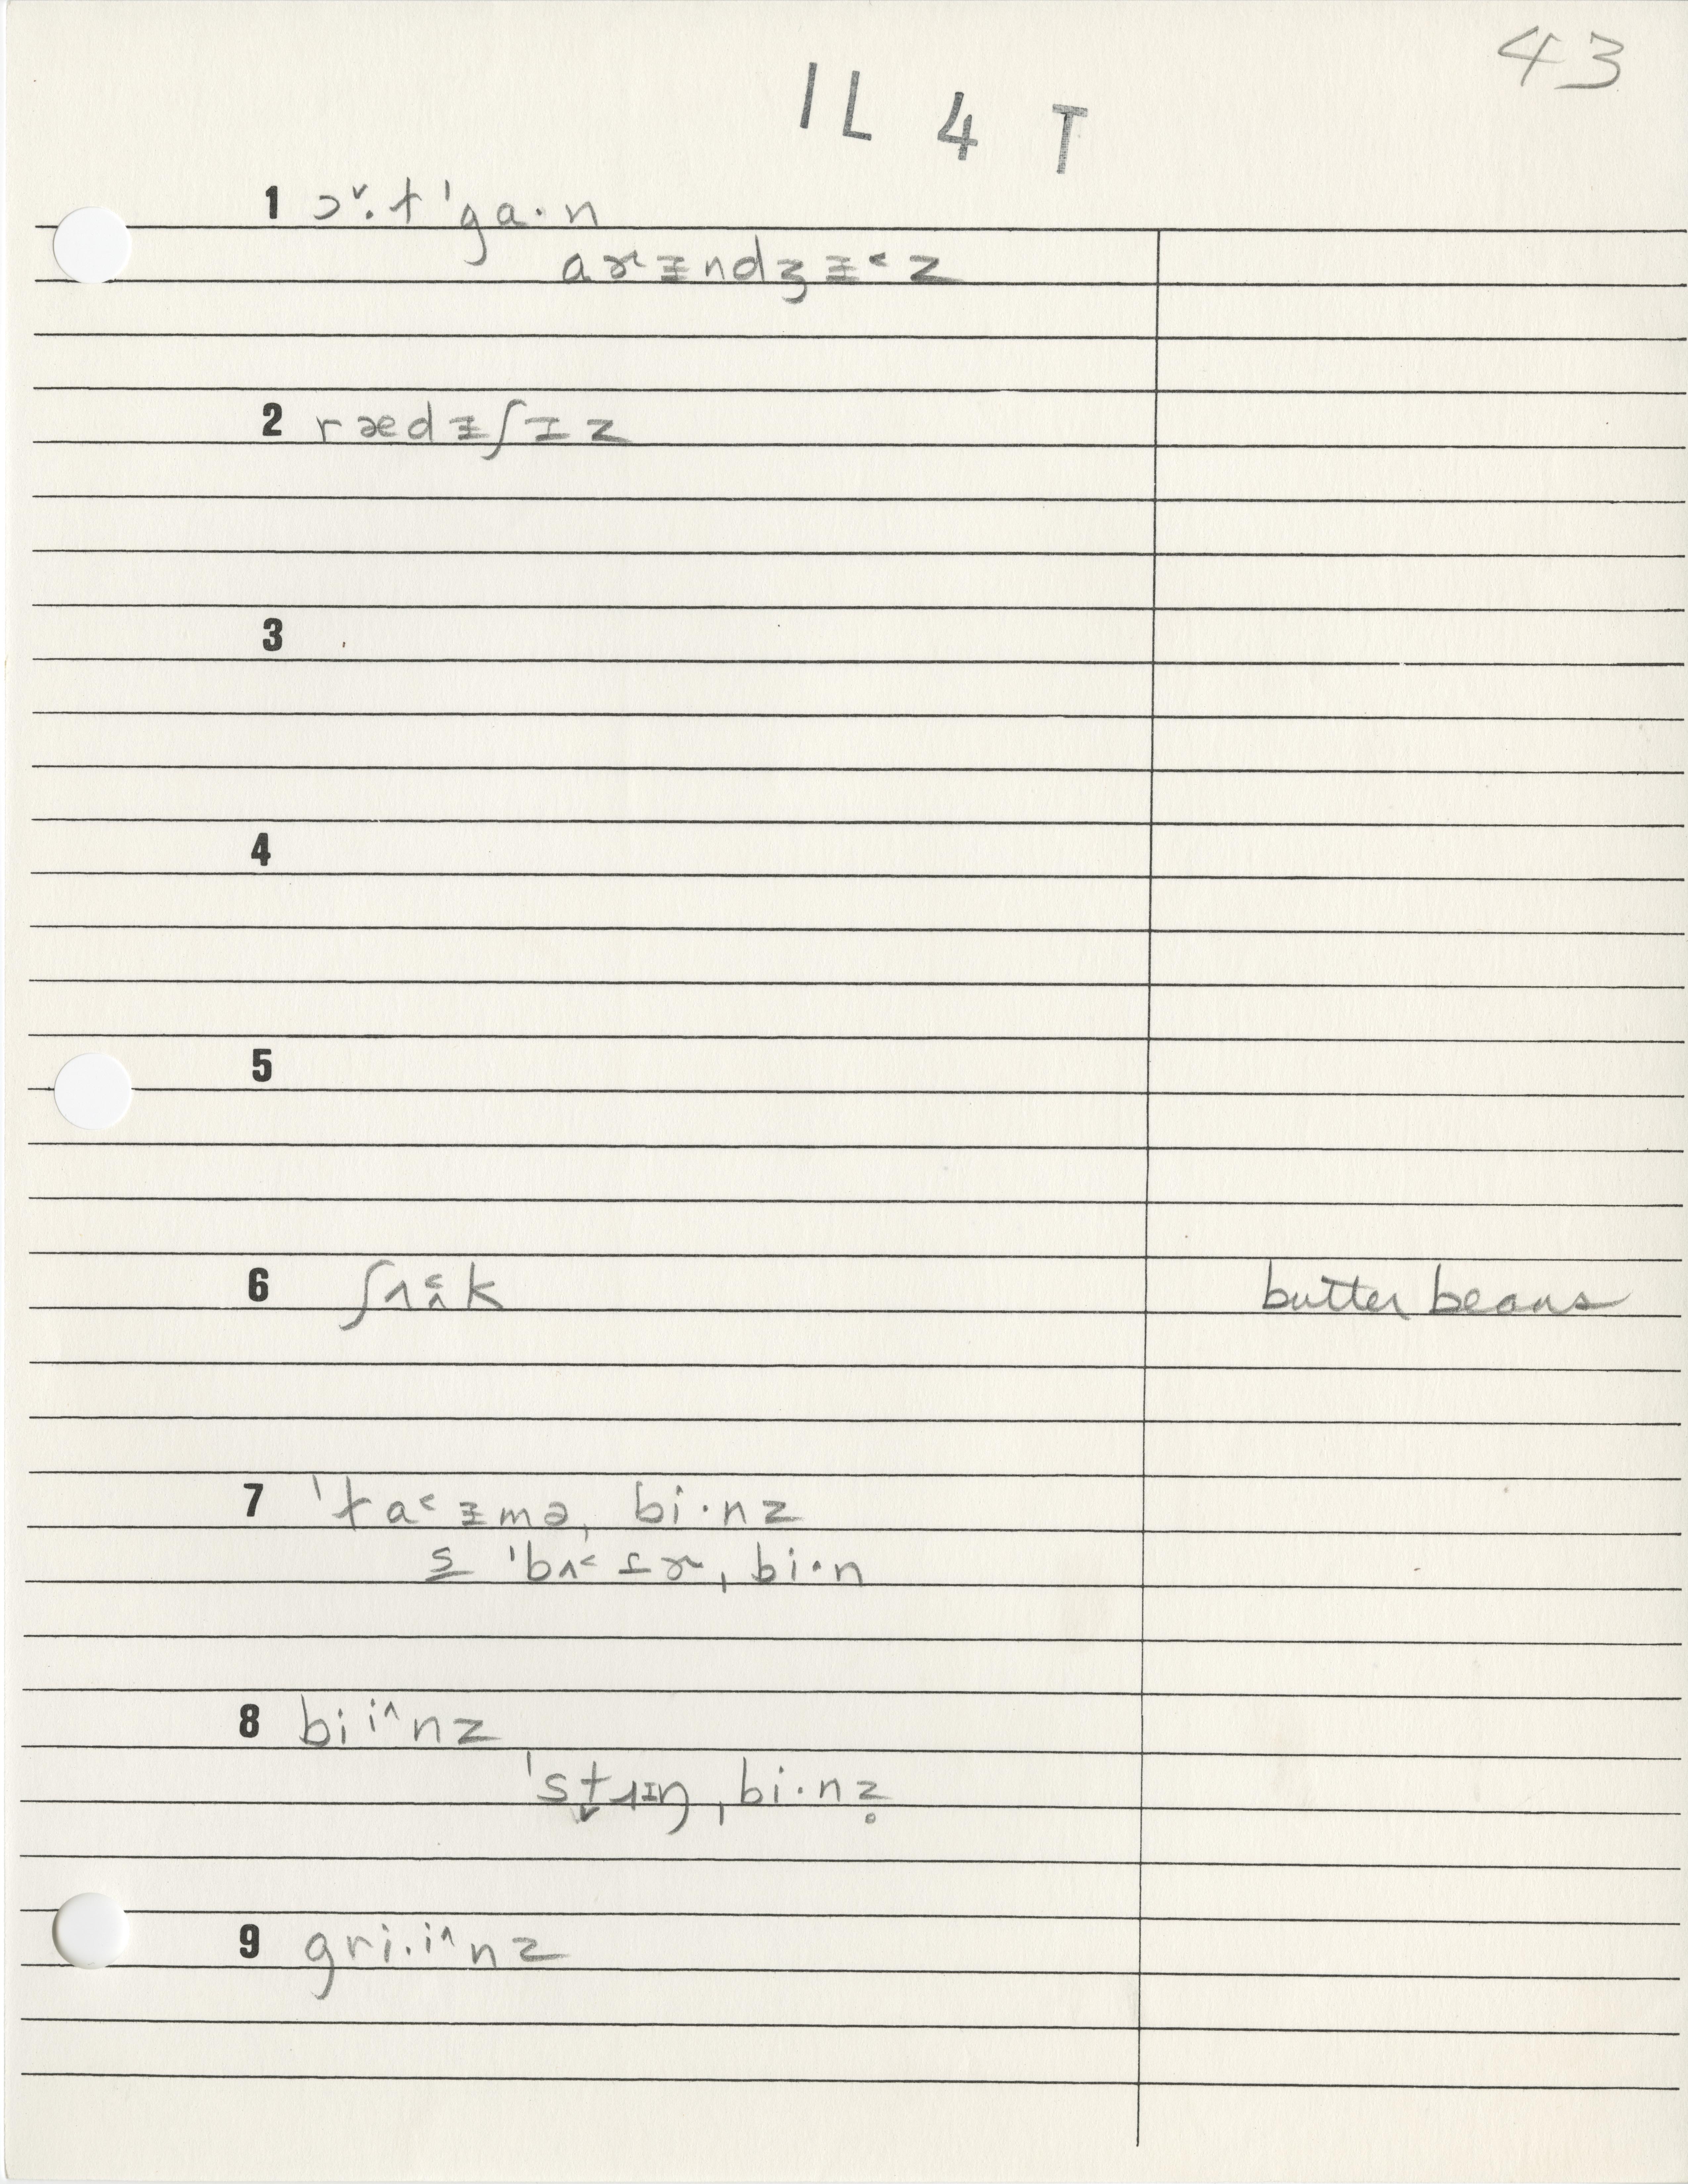 43
IL 4 T
1 ɔˇ·ɫ 'ga·n
aɚɨndʒɨ˂z
2 rædɨʃɪz
3
4
5
6 ʃʌ˂̭k butter beans
7 'ɫa˂ɨmə, bi·nz
s 'bʌ˂ɾɚ, bi·n
8 bii^nz
'st̬ɹɪŋ, bi·nz̥
9 gri·i^nz